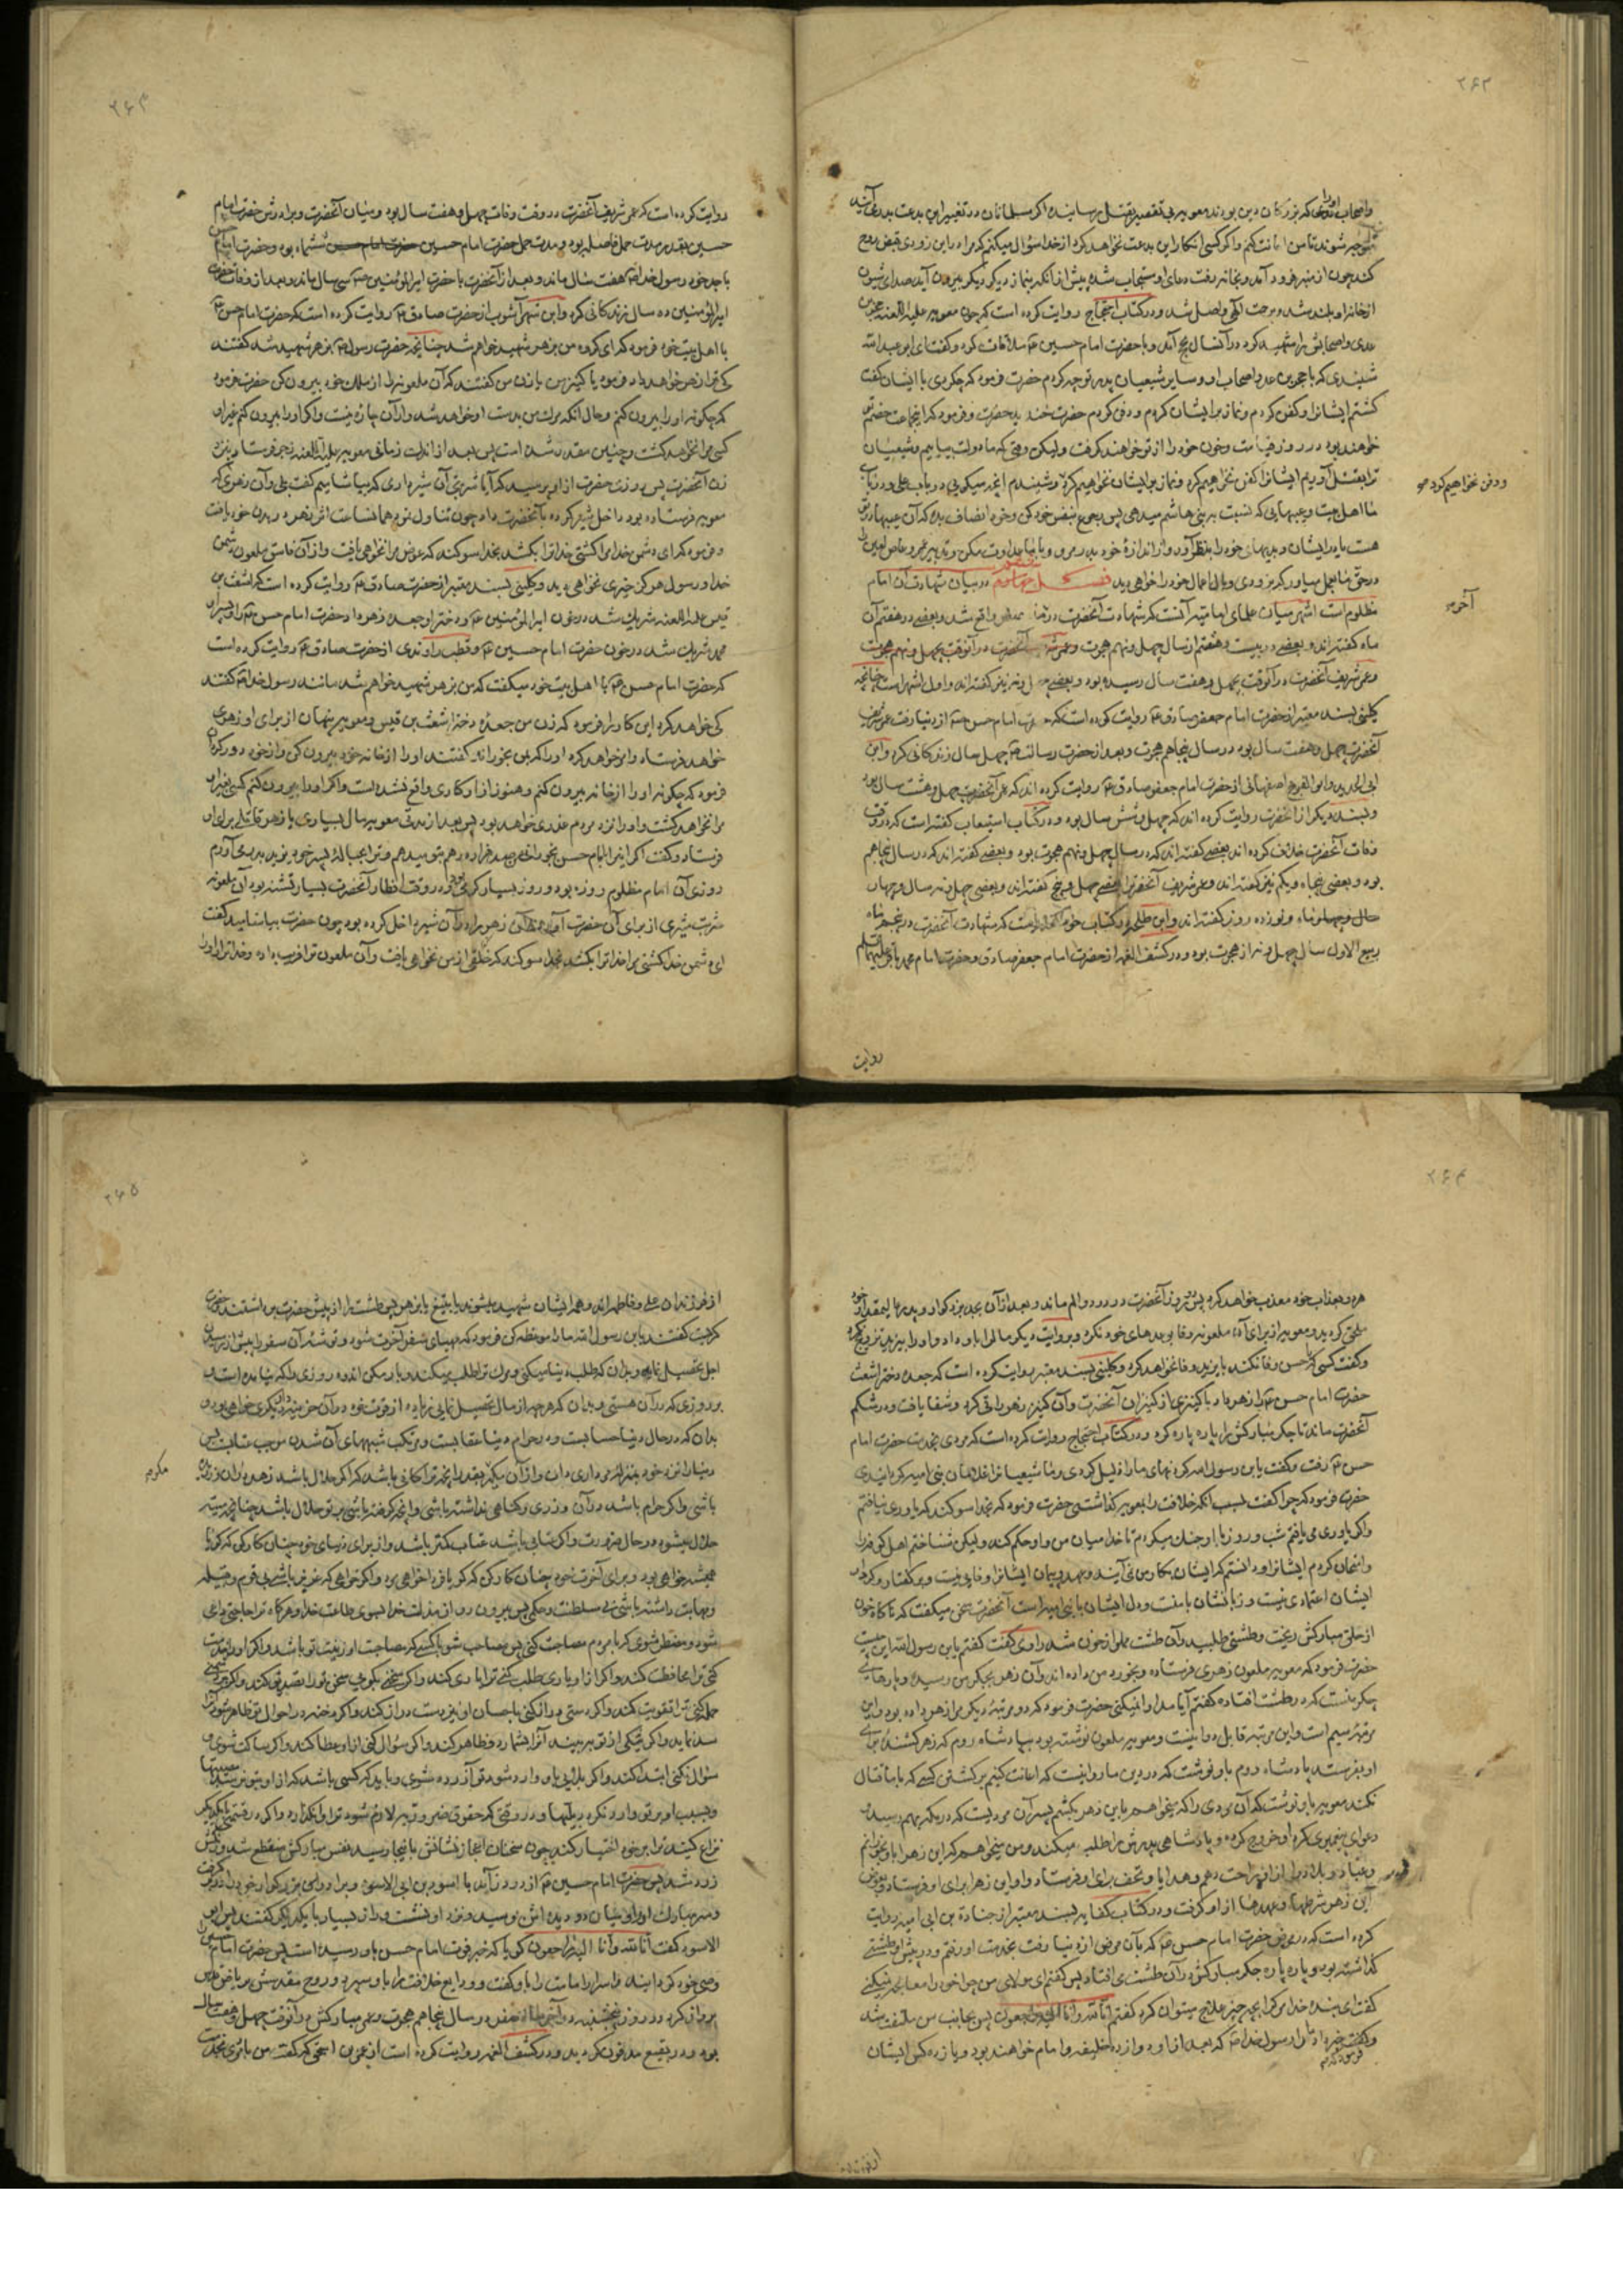 ۲۶۲
واصحاب او را که بزرگان دین بودند معویه بی تقصیر بقتل رسانید اکر مسلمانان در تغییر این بدعت بدرمی آیند
شوند تا من اعانت کنم واکر کسی انکار این بدعت نخواهد کرد از خدا سؤال میکنم که مرا در این زودی قبض روح
کند چون از منبر فرود آمد وبخانه رفت دعای او مستجاب شد پیش از آنکه بنماز دیکر بیرون آید صدای شیون
از خانه او بلند شد وبرحمت الهی واصل شد ودر کتاب احتجاج روایت کرده است که چون معویه علیه اللعنه حجر بن
عدی واصحابش را شهید کرد در آن سال بحج آمد وبا حضرت امام حسین ع ملاقات کرد وکفت ای ابو عبد الله
شنیدی که با حجر بن عدی واصحاب او وسایر شیعیان پدر تو چه کردم حضرت فرمود که چه کردی با ایشان کفت
کشتم ایشانرا وکفن کردم ونماز بر ایشان کردم ودفن کردم حضرت خندید وفرمود که این جماعت خصم تو
خواهند بود در روز قیامت وخون خود را از تو خواهند کرفت ولیکن وقتی که ما دولت بیابیم وشیعیان
ترا بقتل آوریم ایشانرا کفن نخواهیم کرد ونماز بر ایشان نخواهیم کرد وشنیدم آنچه میکویی در باب علی ودر باب
ودفن نخواهیم کرد
ما اهل بیت وعیبهایی که نسبت به بنی هاشم میدهی پس رجوع بنفس خود کن وخود انصاف بده که آن عیبها در تو
هست یا در ایشان
در حق ما عمل میاور که بزودی وبال اعمال خود را خواهی دید فصل چهارم در بیان شهادت آن امام
آخر
مظلوم است اشهر میان علمای امامیه آنست که شهادت آنحضرت در ماه صفر واقع شد وبعضی در هفتم آن
ماه کفته اند وبعضی در بیست وهشتم از سال چهل ونهم هجرت
وعمر شریف آنحضرت در آنوقت بچهل وهفت سال رسیده بود وبعضی چهل ونه نیز کفته اند واول اشهر است چنانچه
کلینی بسند معتبر از حضرت امام جعفر صادق ع روایت کرده است که حضرت امام حسن ع از دنیا رفت عمر شریف
آنحضرت چهل وهفت سال بود در سال پنجاهم هجرت وبعد از حضرت رسالت ص چهل سال زندکانی کرد وابن
ابی الحدید وابو الفرج اصفهانی از حضرت امام جعفر صادق ع روایت کرده اند که عمر آنحضرت چهل وهشت سال بود
وبسند دیکر از آنحضرت روایت کرده اند که چهل وشش سال بود ودر کتاب استیعاب کفته است که در وقت
وفات آنحضرت خلاف کرده اند بعضی کفته اند که در سال چهل ونهم هجرت بود وبعضی کفته اند که در سال پنجاهم
بود وبعضی پنجاه ویکم نیز کفته اند وعمر شریف آنحضرت را بعضی چهل وپنج کفته اند وبعضی چهل ونه سال وچهار
ماه ونوزده روز کفته اند وابن طلحه در کتاب خود گفته است که شهادت آنحضرت در پنجم ماه
ربیع الاول سال چهل ونه از هجرت بود ودر کشف الغمه از حضرت امام جعفر صادق وحضرت امام محمد باقر علیهما السلم
روایت
۲۶۳
روایت کرده است که عمر شریف آنحضرت در وقت وفات چهل وهفت سال بود ومیان آنحضرت وبرادرش حضرت امام
حسین بقدر مدت حمل فاصله بود ومدت حمل حضرت امام حسین ششماه بود وحضرت امام حسن
با جد خود رسول خدا ص هفت سال ماند وبعد از آنحضرت با حضرت امیر المؤمنین ع سی سال ماند وبعد از وفات حضرت
امیر المؤمنین ده سال زندکانی کرد وابن شهر آشوب از حضرت صادق ع روایت کرده است که حضرت امام حسن ع
با اهل بیت خود فرمود که ای کروه من بزهر شهید خواهم شد چنانچه حضرت رسول ص بزهر شهید شد کفتند
کی ترا زهر خواهد داد فرمود یا کنیز من یا زن من کفتند که آن ملعونه را از ملک خود بیرون کن حضرت فرمود
که چکونه او را بیرون کنم وحال آنکه مرك من بدست او خواهد شد واز آن چاره نیست واکر او را بیرون کنم غیر او
کسی مرا نخواهد کشت وچنین مقدر شده است پس بعد از اندك زمانی معویه علیه اللعنه زهری فرستاد بنزد
زن آنحضرت پس روزی حضرت از او پرسید که آیا شربتی از شیر داری که بیاشامیم کفت بلی وآن زهری که
معویه فرستاده بود داخل شیر کرده بآنحضرت داد چون تناول نمود همانساعت اثر زهر در بدن خود یافت
وفرمود که ای دشمن خدا مرا کشتی خدا ترا بکشد بخدا سوکند که عوض مرا نخواهی یافت واز آن فاسق ملعون دشمن
خدا ورسول هرکز خیری نخواهی دید وکلینی بسند معتبر از حضرت صادق ع روایت کرده است که اشعث بن
قیس علیه اللعنه شریك شد در خون امیر المؤمنین ع ودختر او جعده زهر داد حضرت امام حسن ع را وپسر او
محمد شریك شد در خون حضرت امام حسین ع وقطب راوندی از حضرت صادق ع روایت کرده است
که حضرت امام حسن ع با اهل بیت خود میکفت که من بزهر شهید خواهم شد مانند رسول خدا ص کفتند
کی خواهد کرد این کار را فرمود که زن من جعده دختر اشعث بن قیس ومعویه پنهان از برای او زهری
خواهد فرستاد وامر خواهد کرد او را که بمن بخوراند کفتند او را از خانه خود بیرون کن واز خود دور کردان
فرمود که چکونه او را از خانه بیرون کنم وهنوز از او کاری واقع نشده است واکر او را بیرون کنم کسی بغیر او
مرا نخواهد کشت واو را نزد مردم عذری خواهد بود پس بعد از مدتی معویه مال بسیاری با زهر قاتلی برای او
فرستاد وکفت اکر این را بامام حسن بخورانی من صد هزار درهم بتو میدهم وترا بحباله پسر خود یزید در می آورم
روزی آن امام مظلوم روزه بود وروز بسیار کرمی بود ودر وقت افطار آنحضرت بسیار تشنه بود آن ملعونه
شربت شیری از برای آن حضرت آورد وآن زهر را در آن شیر داخل کرده بود چون حضرت بیاشامید کفت
ای دشمن خدا کشتی مرا خدا ترا بکشد بخدا سوکند که خلفی از من نخواهی یافت وآن ملعون ترا فریب داده وخدا ترا واو را
۲۶۴
هر دو بعذاب خود معذب خواهد کرد پس دو روز آنحضرت در درد والم ماند وبعد از آن بجد بزرکوار وپدر عالیمقدار خود
ملحق کردید ومعویه از برای آن ملعونه وفا بوعدهای خود نکرد وبروایت دیکر مال را باو داد واو را بیزید تزویج نکرد
وکفت کسی که با حسن وفا نکند با یزید وفا نخواهد کرد وکلینی بسند معتبر روایت کرده است که جعده دختر اشعث
حضرت امام حسن ع را زهر داد با کنیزی از کنیزان آنحضرت وآن کنیز زهر را قی کرد وشفا یافت ودر شکم
آنحضرت ماند تا جکر مبارکش را پاره پاره کرد ودر کتاب احتجاج روایت کرده است که مردی بخدمت حضرت امام
حسن ع رفت وکفت یا بن رسول الله کردنهای ما را ذلیل کردی وما شیعیان را غلامان بنی امیه کردانیدی
حضرت فرمود که چرا کفت بسبب آنکه خلافت را بمعویه کذاشتی حضرت فرمود که بخدا سوکند که یاوری نیافتم
واکر یاوری می یافتم شب وروز با او جنك میکردم تا خدا میان من واو حکم کند ولیکن شناختم اهل کوفه را
وامتحان کردم ایشانرا ودانستم که ایشان بکار من نمی آیند وعهد وپیمان ایشانرا وفایی نیست وبر کفتار وکردار
ایشان اعتمادی نیست وزبانشان با منست ودل ایشان با بنی امیه است آنحضرت سخن میکفت که ناکاه خون
از حلق مبارکش ریخت وطشتی طلبید وآن طشت مملو از خون شد راوی کفت کفتم یا بن رسول الله این چیست
حضرت فرمود که معویه ملعون زهری فرستاده وبخورد من داده اند وآن زهر بجکر من رسیده وپارهای
جکر منست که در طشت افتاده کفتم آیا مداوا نمیکنی حضرت فرمود که دو مرتبه دیکر مرا زهر داده بود واین
مرتبه سیم است واین مرتبه قابل دوا نیست ومعویه ملعون نوشته بود بپادشاه روم که زهر کشنده برای
او بفرستد پادشاه روم باو نوشت که در دین ما روا نیست که اعانت کنیم بر کشتن کسی که با ما قتال
نکند معویه باو نوشت که آن مردی را که میخواهم باین زهر بکشم پسر آن مردیست که در مکه بهم رسید و
دعوای پیغمبری کرد او خروج کرده وپادشاهی پدرش را طلب میکند ومن میخواهم که این زهر را باو بخورانم
وعباد وبلاد را از او راحت دهم وهدایا وتحف برای او فرستاد واو این زهر را برای او فرستاد وبعوض
این زهر شرطها وعهدها از او کرفت ودر کتاب کفایه بسند معتبر از جنادة بن ابی امیه روایت
کرده است که در مرض حضرت امام حسن ع که بآن مرض از دنیا رفت بخدمت او رفتم ودر پیش او طشتی
کذاشته بود وپاره پاره جکر مبارکش در آن طشت می افتاد پس کفتم ای مولای من چرا خود را معالجه نمیکنی
کفت ای بنده خدا مرك را بچه چیز علاج میتوان کرد کفتم انا لله وانا الیه راجعون پس بجانب من ملتفت شد
وکفت خبر داد ما را رسول خدا ص که بعد از او دوازده خلیفه وامام خواهند بود ویازده کس ایشان
۲۶۵
از فرزندان علی وفاطمه اند وهمه ایشان شهید میشوند یا بتیغ یا بزهر پس طشت را از پیش حضرت برداشتند حضرت
کریست کفتند یا بن رسول الله ما را موعظه کن فرمود که مهیای سفر آخرت شو وتوشه آن سفر را پیش از رسیدن
اجل تحصیل نما وبدان که طلب دنیا میکنی ومرك ترا طلب میکند وبار مکن اندوه روزی را که نیامده است
بر روزی که در آن هستی وبدان که هر چه از مال تحصیل نمایی زیاده از قوت خود در آن خزینه دار دیکری خواهی بود و
بدان که در حلال دنیا حسابست ودر حرام دنیا عقابست ومرتکب شبههای آن شدن موجب عتابست پس
دنیا را نزد خود بمنزله مرداری دان واز آن مکیر مکر بقدر آنچه ترا کافی باشد که اکر حلال باشد زهد در آن ورزیده
مکر
باشی واکر حرام باشد در آن وزری وکناهی نداشته باشی وآنچه کرفته باشی بر تو حلال باشد چنانچه میته
حلال میشود در حال ضرورت واکر عتابی باشد عتاب کمتر باشد واز برای دنیای خود چنان کار کن که کویا
همیشه خواهی بود وبرای آخرت خود چنان کار کن که کویا فردا خواهی مرد واکر خواهی که عزیز باشی بی قوم وقبیله
ومهابت داشته باشی بی سلطنت وحکمی پس بیرون رو از مذلت بسوی طاعت خدا وهرکاه ترا حاجتی داعی
شود ومضطر شوی که با مردم مصاحبت کنی پس مصاحب شو با کسی که مصاحبت او زینت تو باشد واکر او را خدمت
کنی ترا محافظت کند واکر از او یاری طلب کنی ترا یاری کند واکر سخنی بکویی سخن ترا تصدیق کند واکر
حمله کنی ترا تقویت کند واکر دستی دراز کنی باحسان او نیز دست دراز کند واکر رخنه در احوال تو ظاهر شود آنرا
سد نماید واکر نیکی از تو ببیند آنرا بشمارد وظاهر کند واکر سؤال کنی از او عطا کند واکر ساکت شوی و
سؤال نکنی ابتدا کند واکر بلایی باو وارد شود تو آزرده شوی وباید که کسی باشد که از او بتو نرسد مصیبتها
وبسبب او بر تو وارد نکردد بلیها ودر وقتی که حقوق ضروریه لازم شود ترا وانکذارد واکر در قسمتی با یکدیکر
نزاع کنید ترا بر خود اختیار کند چون سخنان اعجاز نشانش باینجا رسید نفس مبارکش منقطع شد ورنکش
زرد شد پس حضرت امام حسین ع از در در آمد با اسود بن ابی الاسود وبرادر بزرکوار خود را در بر کرفت
وسر مبارك او را ومیان دو دیده اش بوسید ونزد او نشست وراز بسیار با یکدیکر کفتند پس ابو
الاسود کفت انا لله وانا الیه راجعون کویا که خبر فوت امام حسن باو رسیده است پس حضرت امام حسین را
وصی خود کردانید واسرار امامت را باو کفت وودایع خلافت را باو سپرد وروح مقدسش بریاض قدس
پرواز کرد در روز پنجشنبه در آخر ماه صفر در سال پنجاهم هجرت وعمر مبارکش در آنوقت چهل وهفت سال
بود ودر بقیع مدفون کردید ودر کشف الغمه روایت کرده است از عمر بن اسحق که کفت من با مردی بخدمت